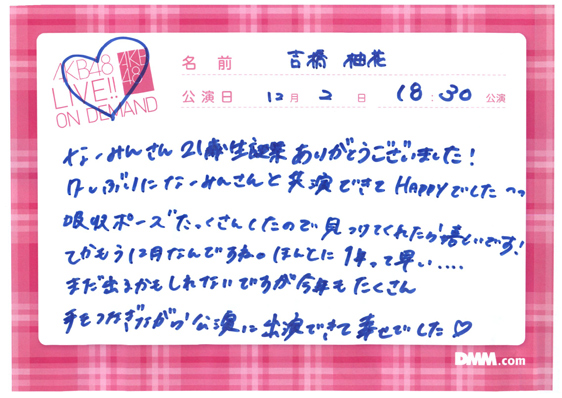 AKB48
LIVE!!
ON DEMAND
AKB
48
名前 吉橋 柚花
公演日 12月 2日 18:30 公演
なーみんさん 21歳生誕祭 ありがとうございました!
久しぶりになーみんさんと共演できて HAPPYでした
吸収ポーズたっくさんしたので見つけてくれたら嬉しいです!
てかもう12月なんですね。ほんとに1年って早い....
まだ出るかもしれないですが今年もたくさん
手をつなぎながら公演に出演できて幸せでした♡
DMM.com